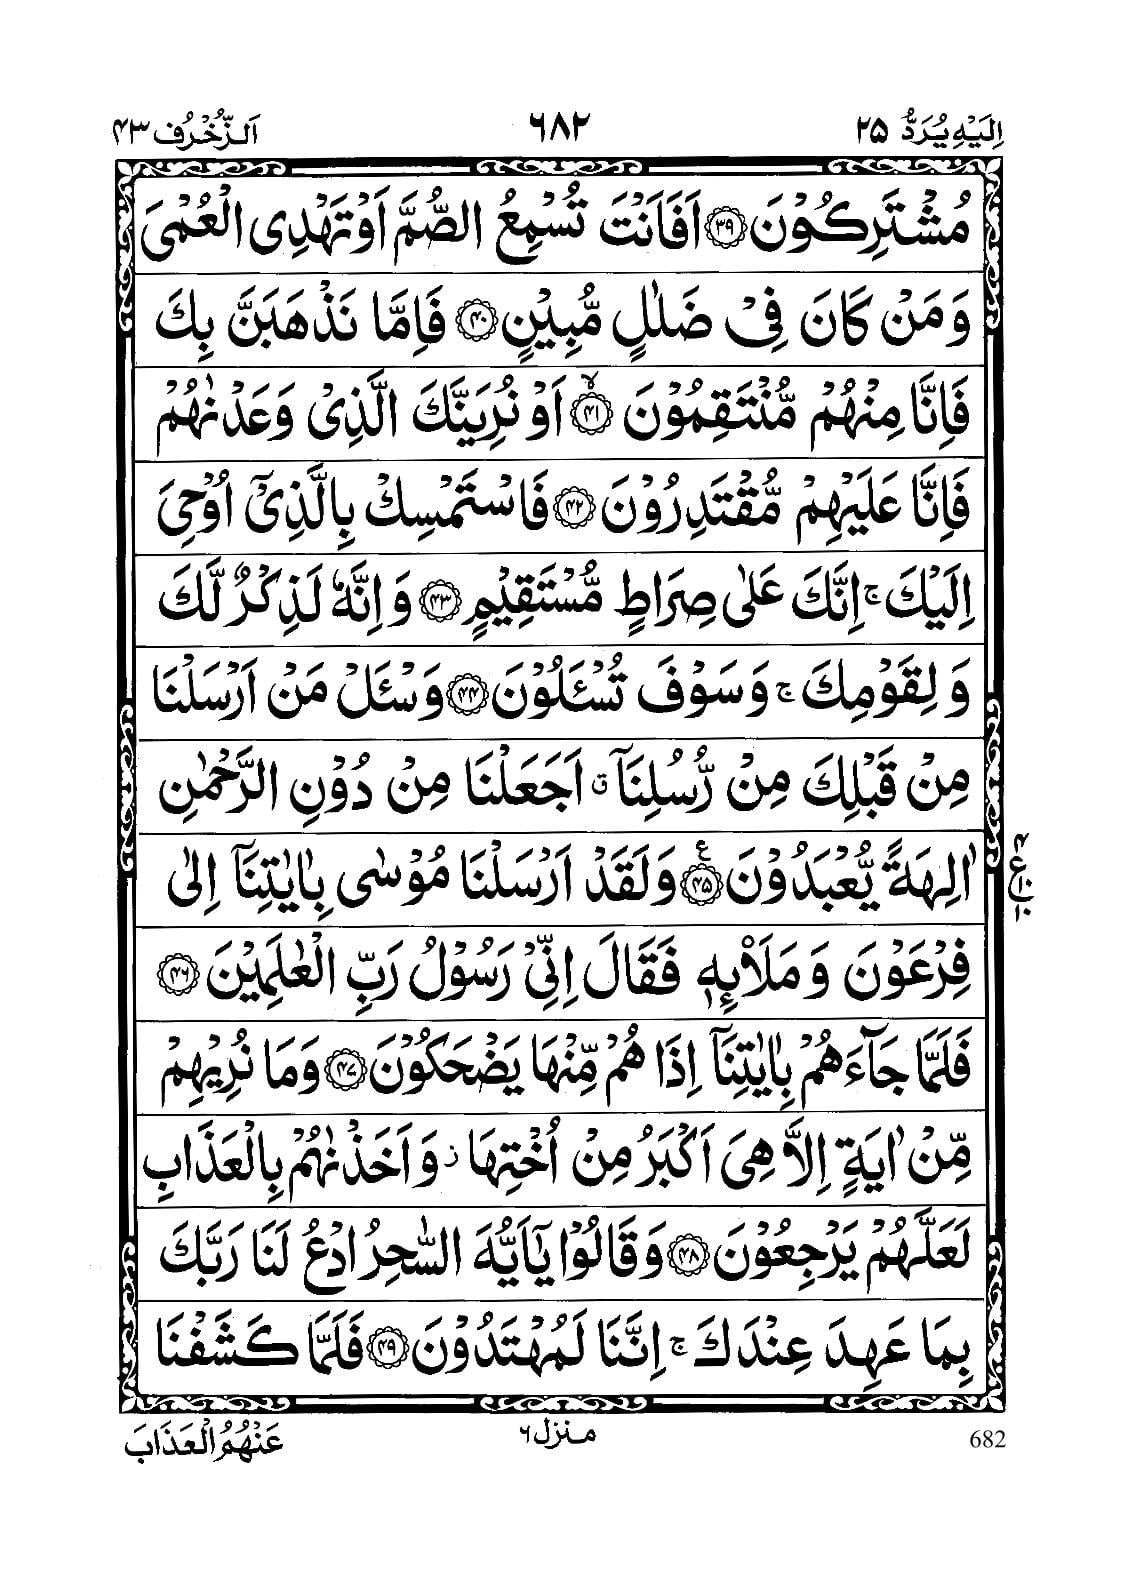 اِلَيْهِ يُرَدُّ ٢٥
٦٨٢
اَلزُّخْرُف ٤٣
مُشْتَرِكُوْنَ ﴿٣٩﴾ اَفَاَنْتَ تُسْمِعُ الصُّمَّ اَوْ تَهْدِى الْعُمْىَ
وَمَنْ كَانَ فِىْ ضَلٰلٍ مُّبِيْنٍ ﴿٤٠﴾ فَاِمَّا نَذْهَبَنَّ بِكَ
فَاِنَّا مِنْهُمْ مُّنْتَقِمُوْنَ ﴿٤١﴾ۙ اَوْ نُرِيَنَّكَ الَّذِىْ وَعَدْنٰهُمْ
فَاِنَّا عَلَيْهِمْ مُّقْتَدِرُوْنَ ﴿٤٢﴾ فَاسْتَمْسِكْ بِالَّذِىْۤ اُوْحِىَ
اِلَيْكَ ۚ اِنَّكَ عَلٰى صِرَاطٍ مُّسْتَقِيْمٍ ﴿٤٣﴾ وَاِنَّهٗ لَذِكْرٌ لَّكَ
وَلِقَوْمِكَ ۚ وَسَوْفَ تُسْـَٔلُوْنَ ﴿٤٤﴾ وَسْـَٔلْ مَنْ اَرْسَلْنَا
مِنْ قَبْلِكَ مِنْ رُّسُلِنَاۤ ق اَجَعَلْنَا مِنْ دُوْنِ الرَّحْمٰنِ
اٰلِهَةً يُّعْبَدُوْنَ ﴿٤٥﴾ ع وَلَقَدْ اَرْسَلْنَا مُوْسٰى بِاٰيٰتِنَاۤ اِلٰى
٤ ع ١٠ ١٠
فِرْعَوْنَ وَمَلَا۟ئِهٖ فَقَالَ اِنِّىْ رَسُوْلُ رَبِّ الْعٰلَمِيْنَ ﴿٤٦﴾
فَلَمَّا جَآءَهُمْ بِاٰيٰتِنَاۤ اِذَا هُمْ مِّنْهَا يَضْحَكُوْنَ ﴿٤٧﴾ وَمَا نُرِيْهِمْ
مِّنْ اٰيَةٍ اِلَّا هِىَ اَكْبَرُ مِنْ اُخْتِهَا ز وَاَخَذْنٰهُمْ بِالْعَذَابِ
لَعَلَّهُمْ يَرْجِعُوْنَ ﴿٤٨﴾ وَقَالُوْا يٰۤاَيُّهَ السّٰحِرُ ادْعُ لَنَا رَبَّكَ
بِمَا عَهِدَ عِنْدَكَ ۚ اِنَّنَا لَمُهْتَدُوْنَ ﴿٤٩﴾ فَلَمَّا كَشَفْنَا
682
منزل ٦
عَنْهُمُ الْعَذَابَ